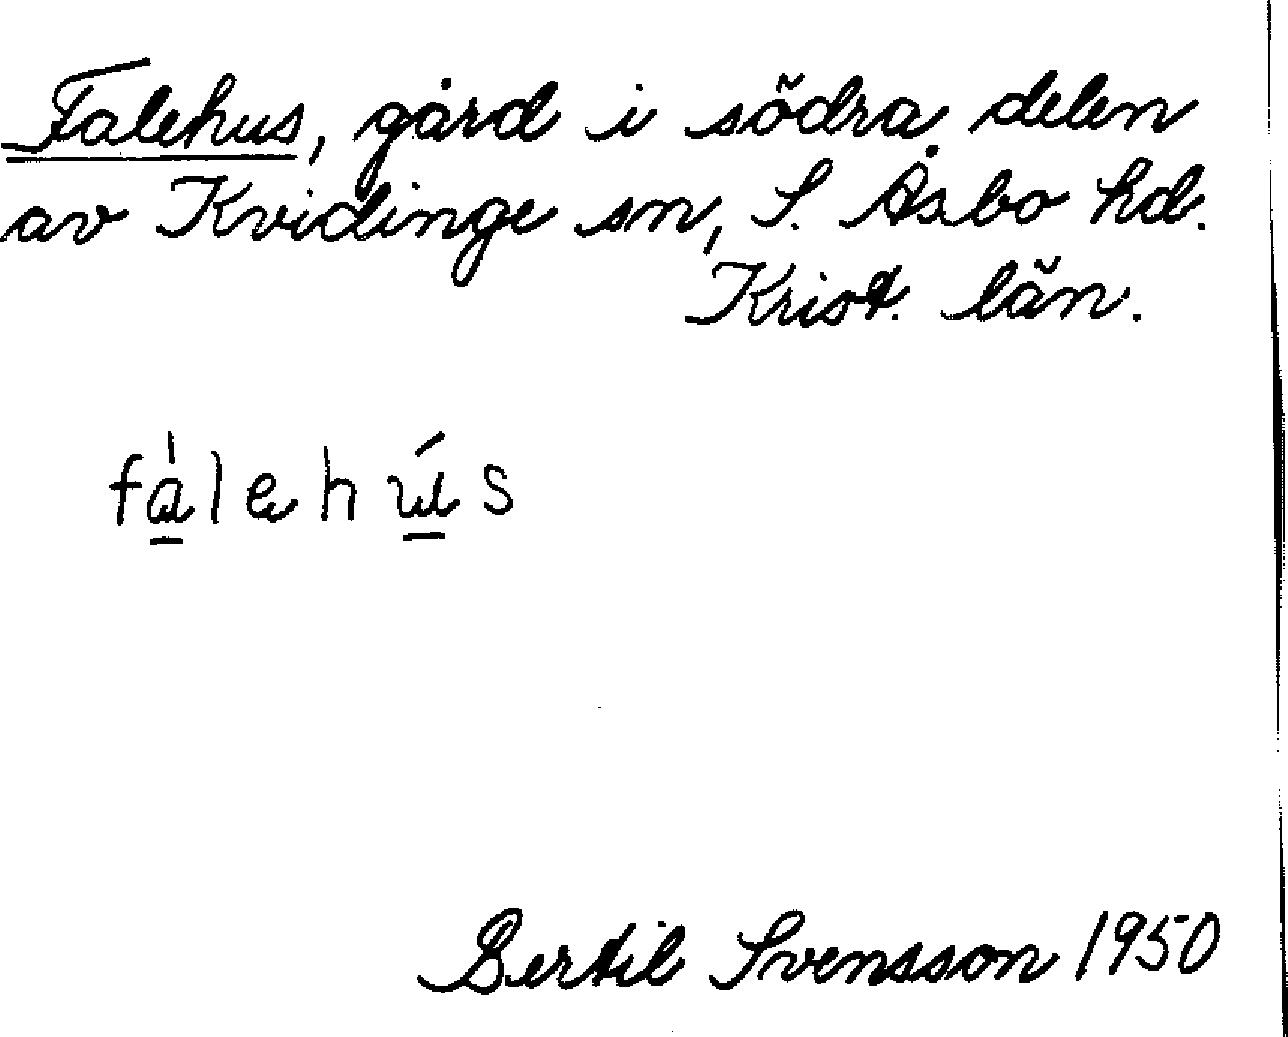 Falehus, gård i södra delen
av Kvidinge sn, S. Åsbo hd.
Krist. län.
fa̲̍lehú̲s
Bertil Svensson 1950